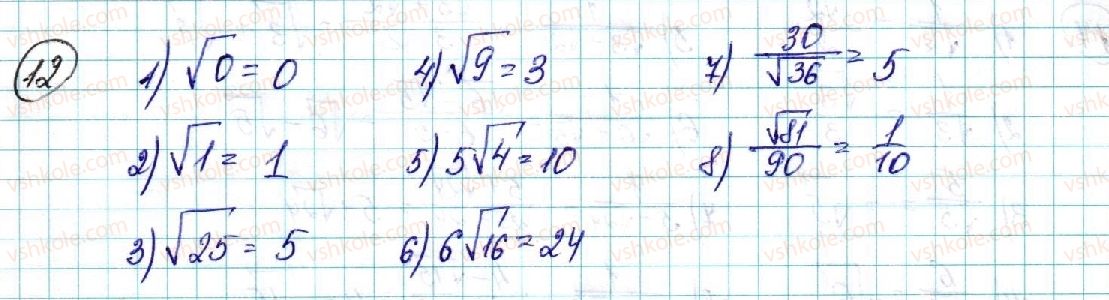 12
1) √0 = 0
2) √1 = 1
3) √25 = 5
4) √9 = 3
5) 5√4 = 10
6) 6√16 = 24
7) 30/√36 = 5
8) √81/90 = 1/10
vshkole.com